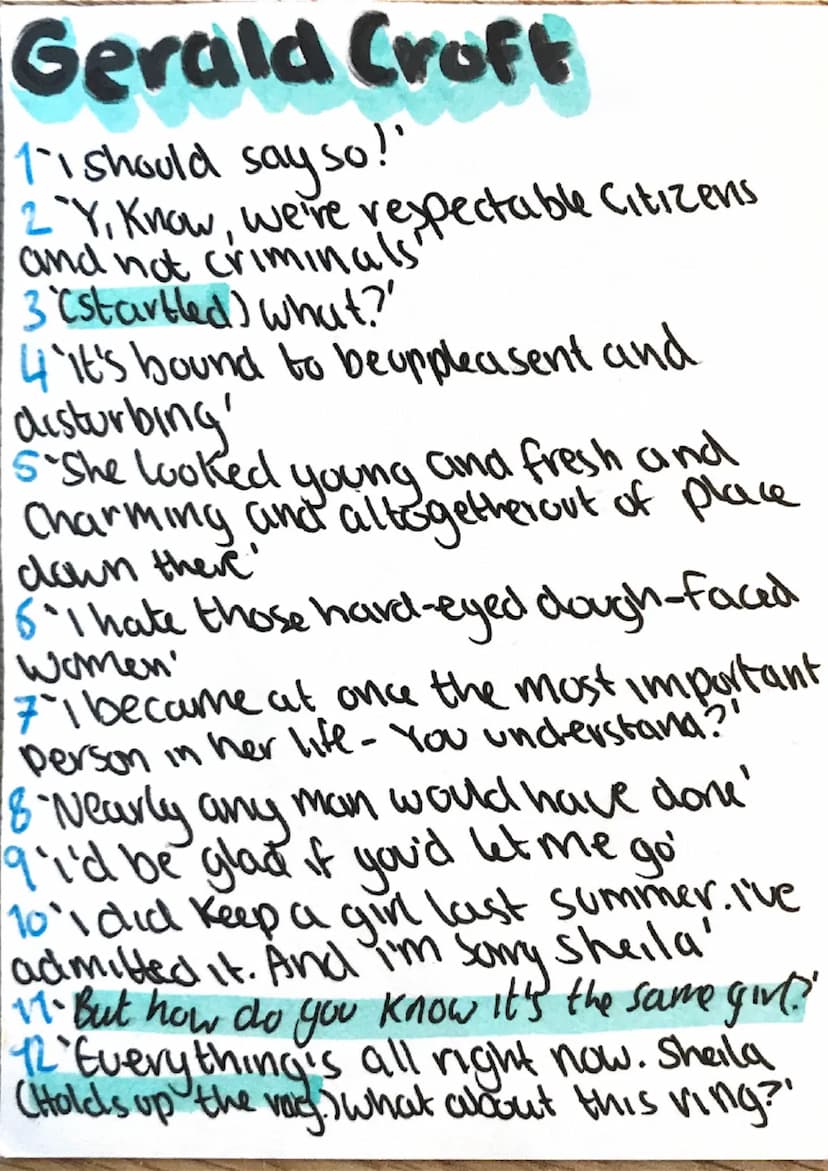 Gerald Croft
1 'I should say so!'
2 'Y, Know, we're respectable Citizens
and not criminals'
3 '(startled) what?'
4 'It's bound to be unpleasent and
disturbing'
5 'She looked young and fresh and
Charming and altogether out of place
down there'
6 'I hate those hard-eyed dough-faced
women'
7 'I became at once the most important
person in her life - You understand?'
8 'Nearly any man would have done'
9 'I'd be glad if you'd let me go'
10 'I did keep a girl last summer. I've
admitted it. And I'm sorry Sheila'
11 'But how do you know it's the same girl?'
12 'Everything's all right now. Sheila
(Holds up the ring.) What about this ring?'